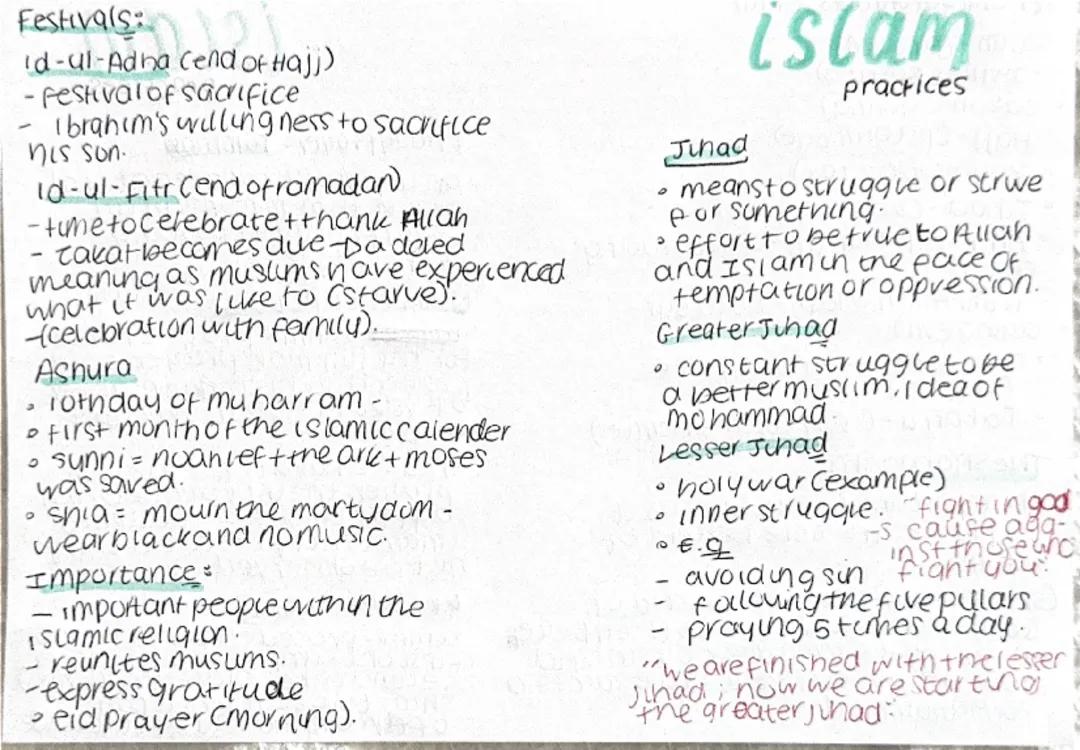 Festivals:
id-ul-Adha (end of Hajj)
- festival of sacrifice
- Ibrahim's willingness to sacrifice
his son.
id-ul-Fitr (end of ramadan)
- time to celebrate + thank Allah
- zakat becomes due → added
meaning as muslims have experienced
what it was like to (starve).
- (celebration with family).
Ashura
• 10th day of muharram -
• first month of the islamic calender
• sunni = noah left the ark + moses
was saved.
• shia = mourn the martydom -
wear black and no music.
Importance:
- important people within the
islamic religion.
- reunites muslims.
- express gratitude
• eid prayer (morning).
islam
practices
Jihad
• means to struggle or strive
for something.
• effort to be true to Allah
and Islam in the face of
temptation or oppression.
Greater Jihad
• constant struggle to be
a better muslim. idea of
mohammad
Lesser Jihad
• holy war (example)
• inner struggle.
• E.g
- avoiding sin
following the five pillars
- praying 5 times a day.
- fight in god
-s cause aga-
inst those who
fight you."
"we are finished with the lesser
jihad; now we are starting
the greater jihad."